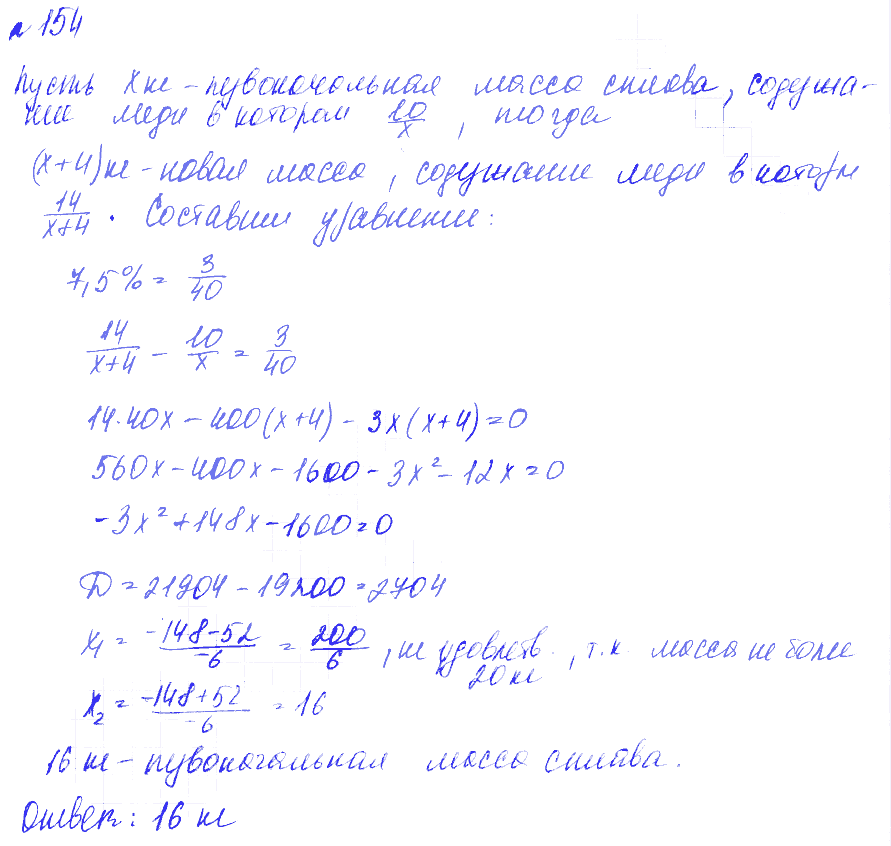 №154
Пусть x кг – первоначальная масса сплава, содержа-
ние меди в котором 10/x, тогда
(x+4) кг – новая масса, содержание меди в котором
14/(x+4). Составим уравнение:
7,5% = 3/40
14/(x+4) – 10/x = 3/40
14·40x – 400(x+4) – 3x(x+4)=0
560x – 400x – 1600 – 3x² – 12x = 0
-3x² + 148x – 1600 = 0
D = 21904 – 19200 = 2704
x₁ = (-148-52)/(-6) = 200/6, не удовлетв., т.к. масса не более
20 кг
x₂ = (-148+52)/(-6) = 16
16 кг – первоначальная масса сплава.
Ответ: 16 кг